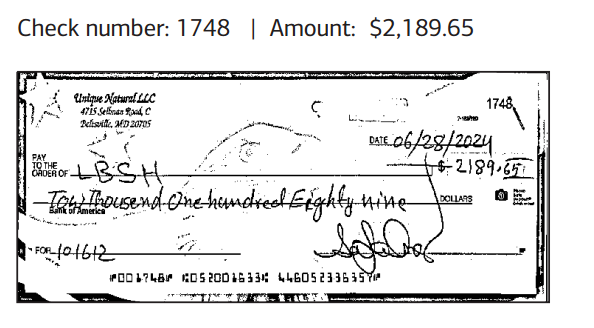 Check number: 1748 | Amount: $2,189.65
Unique Natural LLC
4715 Sellman Road, C
Beltsville, MD 20705
1748
DATE 06/28/2024
PAY
TO THE
ORDER OF LBSH
$ 2189.65
Tow Thousend One hundred Eighty nine DOLLARS
Bank of America
FOR 101612
⑈001748⑈ ⑆052001633⑆ 446052336357⑈